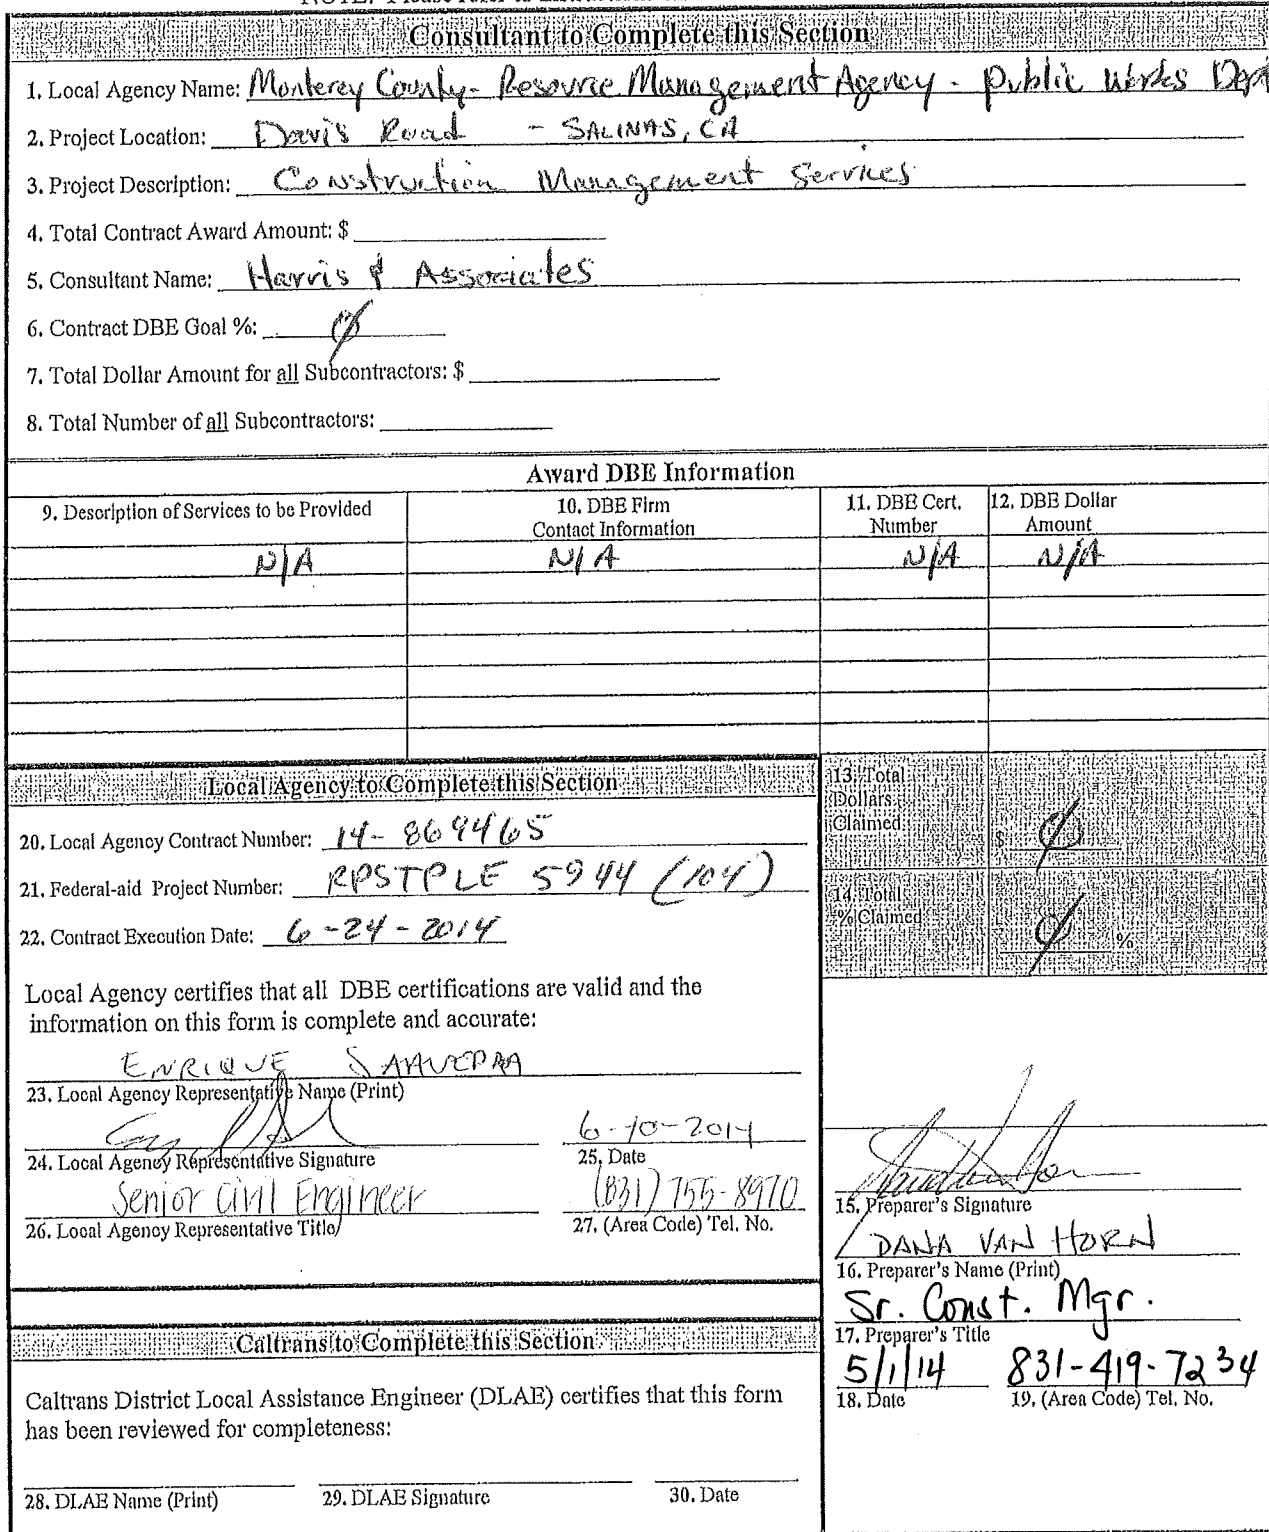 Consultant to Complete this Section
1. Local Agency Name: Monterey County- Resource Management Agency - Public Works Dept
2. Project Location: Davis Road - SALINAS, CA
3. Project Description: Construction Management Services
4. Total Contract Award Amount: $
5. Consultant Name: Harris & Associates
6. Contract DBE Goal %: Ø
7. Total Dollar Amount for all Subcontractors: $
8. Total Number of all Subcontractors:
Award DBE Information
9. Description of Services to be Provided
10. DBE Firm
Contact Information
11. DBE Cert.
Number
12. DBE Dollar
Amount
N/A N/A N/A N/A
Local Agency to Complete this Section
20. Local Agency Contract Number: 14-869465
21. Federal-aid Project Number: RPSTPLE 5944 (104)
22. Contract Execution Date: 6-24-2014
Local Agency certifies that all DBE certifications are valid and the
information on this form is complete and accurate:
ENRIQUE
23. Local Agency Representative Name (Print)
6-10-2014
24. Local Agency Representative Signature
25. Date
Senior Civil Engineer
(831) 755-8970
26. Local Agency Representative Title
27. (Area Code) Tel. No.
13. Total
Dollars
Claimed
$ Ø
14. Total
% Claimed
Ø %
15. Preparer's Signature
DANA VAN HORN
16. Preparer's Name (Print)
Sr. Const. Mgr.
17. Preparer's Title
5/1/14 831-419-7234
18. Date 19. (Area Code) Tel. No.
Caltrans to Complete this Section
Caltrans District Local Assistance Engineer (DLAE) certifies that this form
has been reviewed for completeness:
28. DLAE Name (Print) 29. DLAE Signature 30. Date